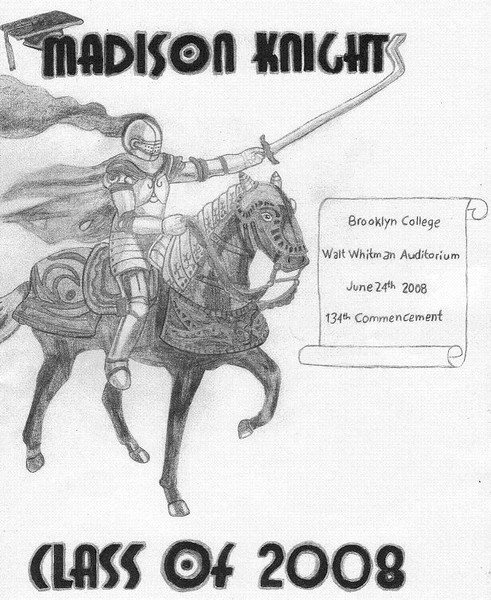 MADISON KNIGHTS
Brooklyn College
Walt Whitman Auditorium
June 24th 2008
134th Commencement
CLASS OF 2008